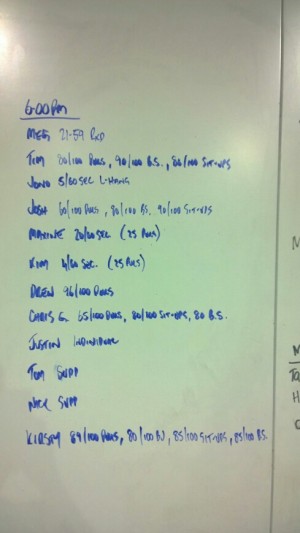 6:00PM
MEG 21:59 RXD
TOM 80/100 PUS, 90/100 B.S., 86/100 SIT-UPS
JONO 5/60 SEC L-HANG
JOSH 60/100 PUS, 80/100 B.S. 90/100 SIT-UPS
MAXINE 20/60 SEC (25 PUS)
KIM 4/60 SEC. (25 PUS)
DREW 96/100 PUS
CHRIS G. 65/100 PUS, 80/100 SIT-UPS, 80 B.S.
JUSTIN INDIVIDUAL
TOM SUPP
NICK SUPP
KIRSTY 89/100 PUS, 80/100 PU, 85/100 SIT-UPS, 85/100 B.S.
M
M
To
H